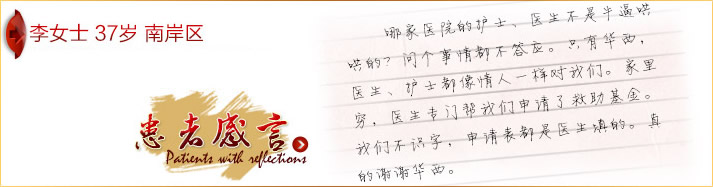 李女士 37岁 南岸区
患者感言
Patients with reflections
哪家医院的护士、医生不是牛逼哄
哄的？问个事情都不答应。只有华西，
医生、护士都像情人一样对我们。家里
穷，医生专门帮我们申请了救助基金。
我们不识字，申请表都是医生填的。真
的谢谢华西。